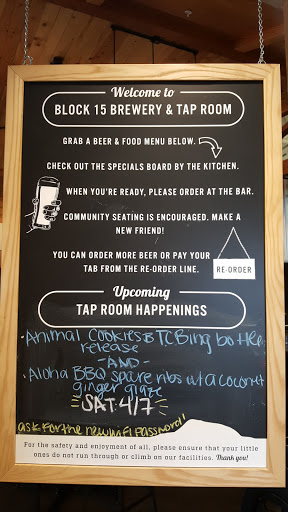 Welcome to
BLOCK 15 BREWERY & TAP ROOM
GRAB A BEER & FOOD MENU BELOW.
CHECK OUT THE SPECIALS BOARD BY THE KITCHEN.
WHEN YOU'RE READY, PLEASE ORDER AT THE BAR.
COMMUNITY SEATING IS ENCOURAGED. MAKE A
NEW FRIEND!
YOU CAN ORDER MORE BEER OR PAY YOUR
TAB FROM THE RE-ORDER LINE.
RE-ORDER
Upcoming
TAP ROOM HAPPENINGS
·Animal Cookies & TCBing bottle
release
-AND-
·Aloha BBQ spare ribs w/ a coconut
ginger glaze
SAT. 4/7
ask for the new wifi password!
For the safety and enjoyment of all, please ensure that your little
ones do not run through or climb on our facilities. Thank you!